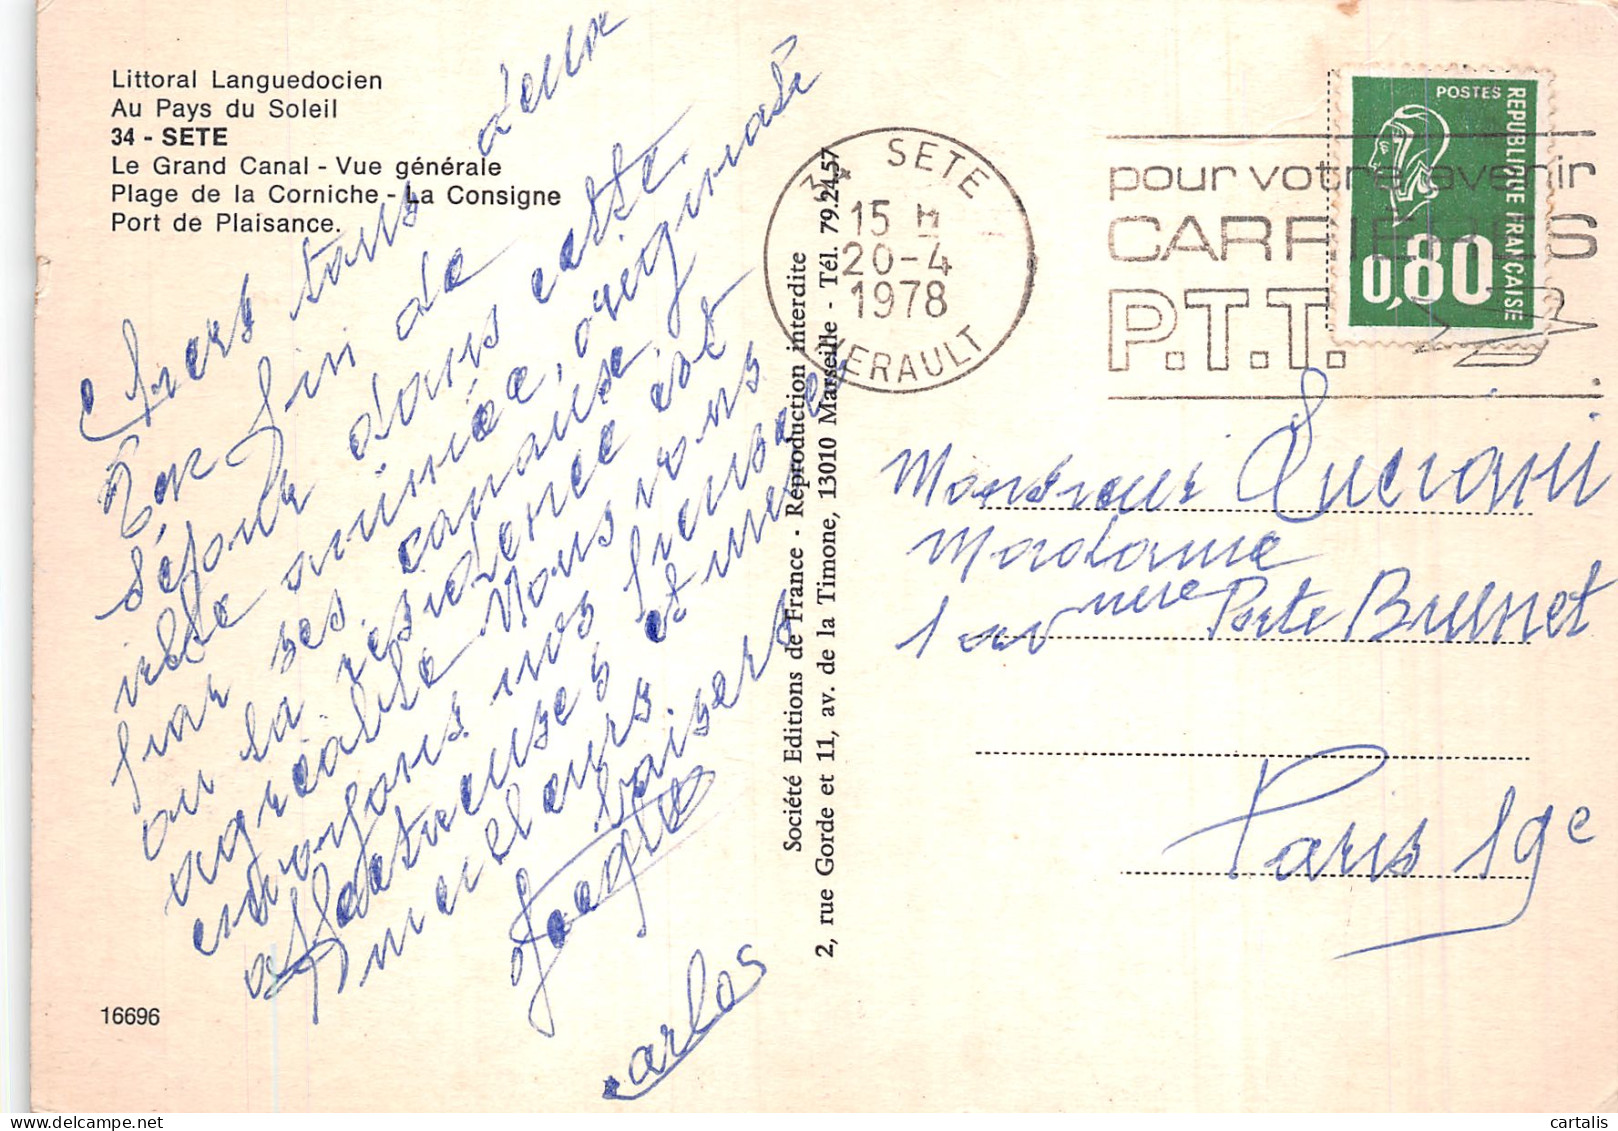 Littoral Languedocien
Au Pays du Soleil
34 - SETE
Le Grand Canal - Vue générale
Plage de la Corniche - La Consigne
Port de Plaisance.
Chers tous deux
séjour dans cette
animée, originale
par ses canaux,
ou la résidence est
agréable Nous vous
envoyons nos
affectueuses et
meilleurs
baisers
Carlos
16696
Société Editions de France - Reproduction interdite
2, rue Gorde et 11, av. de la Timone, 13010 Marseille - Tél. 79.24.57
34 SETE
15 H
20-4
1978
HERAULT
pour votre avenir
CARRIERES
P.T.T.
POSTES
REPUBLIQUE FRANÇAISE
0,80
Monsieur Luciani
Madame
1 avenue Porte Brunet
Paris 19e